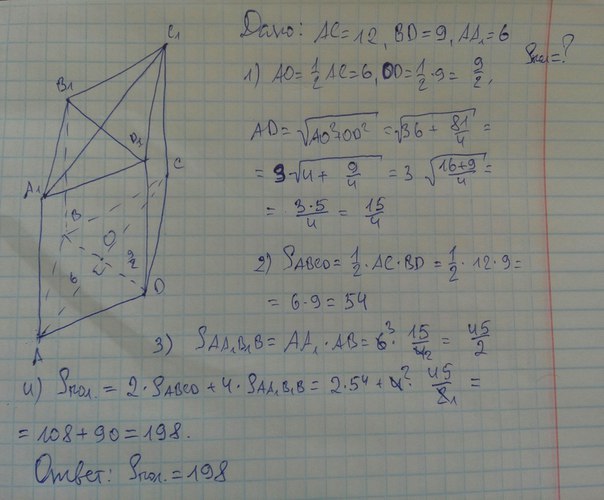 Дано: AC=12, BD=9, AA₁=6
Sпол=?
1) AO=1/2 AC=6, OD=1/2·9=9/2,
AD=√(AO²+OD²)=√(36+81/4)=
=3√(4+9/4)=3√((16+9)/4)=
=(3·5)/4=15/4
2) SABCD=1/2·AC·BD=1/2·12·9=
=6·9=54
3) SAA₁B₁B=AA₁·AB=6³·15/4₂=45/2
4) Sпол.=2·SABCD+4·SAA₁B₁B=2·54+4²·45/2₁=
=108+90=198.
Ответ: Sпол.=198
C₁
B₁
D₁
C
A₁
B
O
9/2
6
D
A